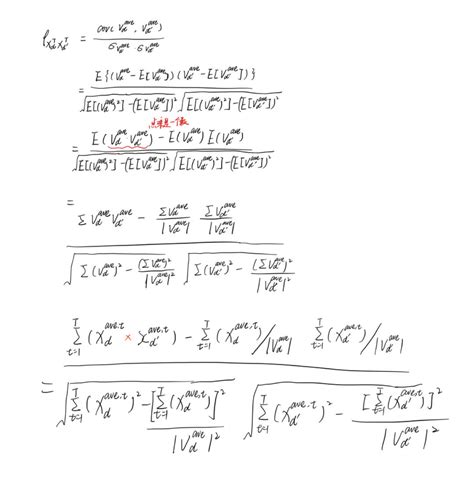 ρ_{X_d^T X_{d'}^T} = cov(V_d^{ave}, V_{d'}^{ave}) / (σ_{V_d^{ave}} σ_{V_{d'}^{ave}})
= E{(V_d^{ave} - E[V_d^{ave}])(V_{d'}^{ave} - E[V_{d'}^{ave}])} / (√(E[(V_d^{ave})²] - (E[V_d^{ave}])²) √(E[(V_{d'}^{ave})²] - (E[V_{d'}^{ave}])²))
点乘是一个数
= (E(V_d^{ave} V_{d'}^{ave}) - E(V_d^{ave}) E(V_{d'}^{ave})) / (√(E[(V_d^{ave})²] - (E[V_d^{ave}])²) √(E[(V_{d'}^{ave})²] - (E[V_{d'}^{ave}])²))
= (Σ V_d^{ave} V_{d'}^{ave} - Σ V_d^{ave} / |V_d^{ave}| Σ V_{d'}^{ave} / |V_{d'}^{ave}|) / (√(Σ (V_d^{ave})² - (Σ V_d^{ave})² / |V_d^{ave}|²) √(Σ (V_{d'}^{ave})² - (Σ V_{d'}^{ave})² / |V_{d'}^{ave}|²))
= (Σ_{t=1}^T (X_d^{ave,t} × X_{d'}^{ave,t}) - Σ_{t=1}^T (X_d^{ave,t}) / |V_d^{ave}| Σ_{t=1}^T (X_{d'}^{ave,t}) / |V_{d'}^{ave}|) / (√(Σ_{t=1}^T (X_d^{ave,t})² - [Σ_{t=1}^T (X_d^{ave,t})]² / |V_d^{ave}|²) √(Σ_{t=1}^T (X_{d'}^{ave,t})² - [Σ_{t=1}^T (X_{d'}^{ave,t})]² / |V_{d'}^{ave}|²))